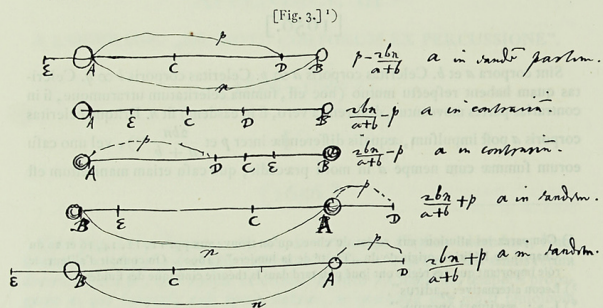 [Fig. 3.] ¹)
p
E A C D B p - 2bn/a+b a in eandem partem.
n
A E C D B 2bn/a+b - p a in contrariũ.
p
A D C E B 2bn/a+b - p a in contrariũ.
p
B E C A D 2bn/a+b + p a in eandem.
n
p
E B C A D 2bn/a+b + p a in eandem.
n